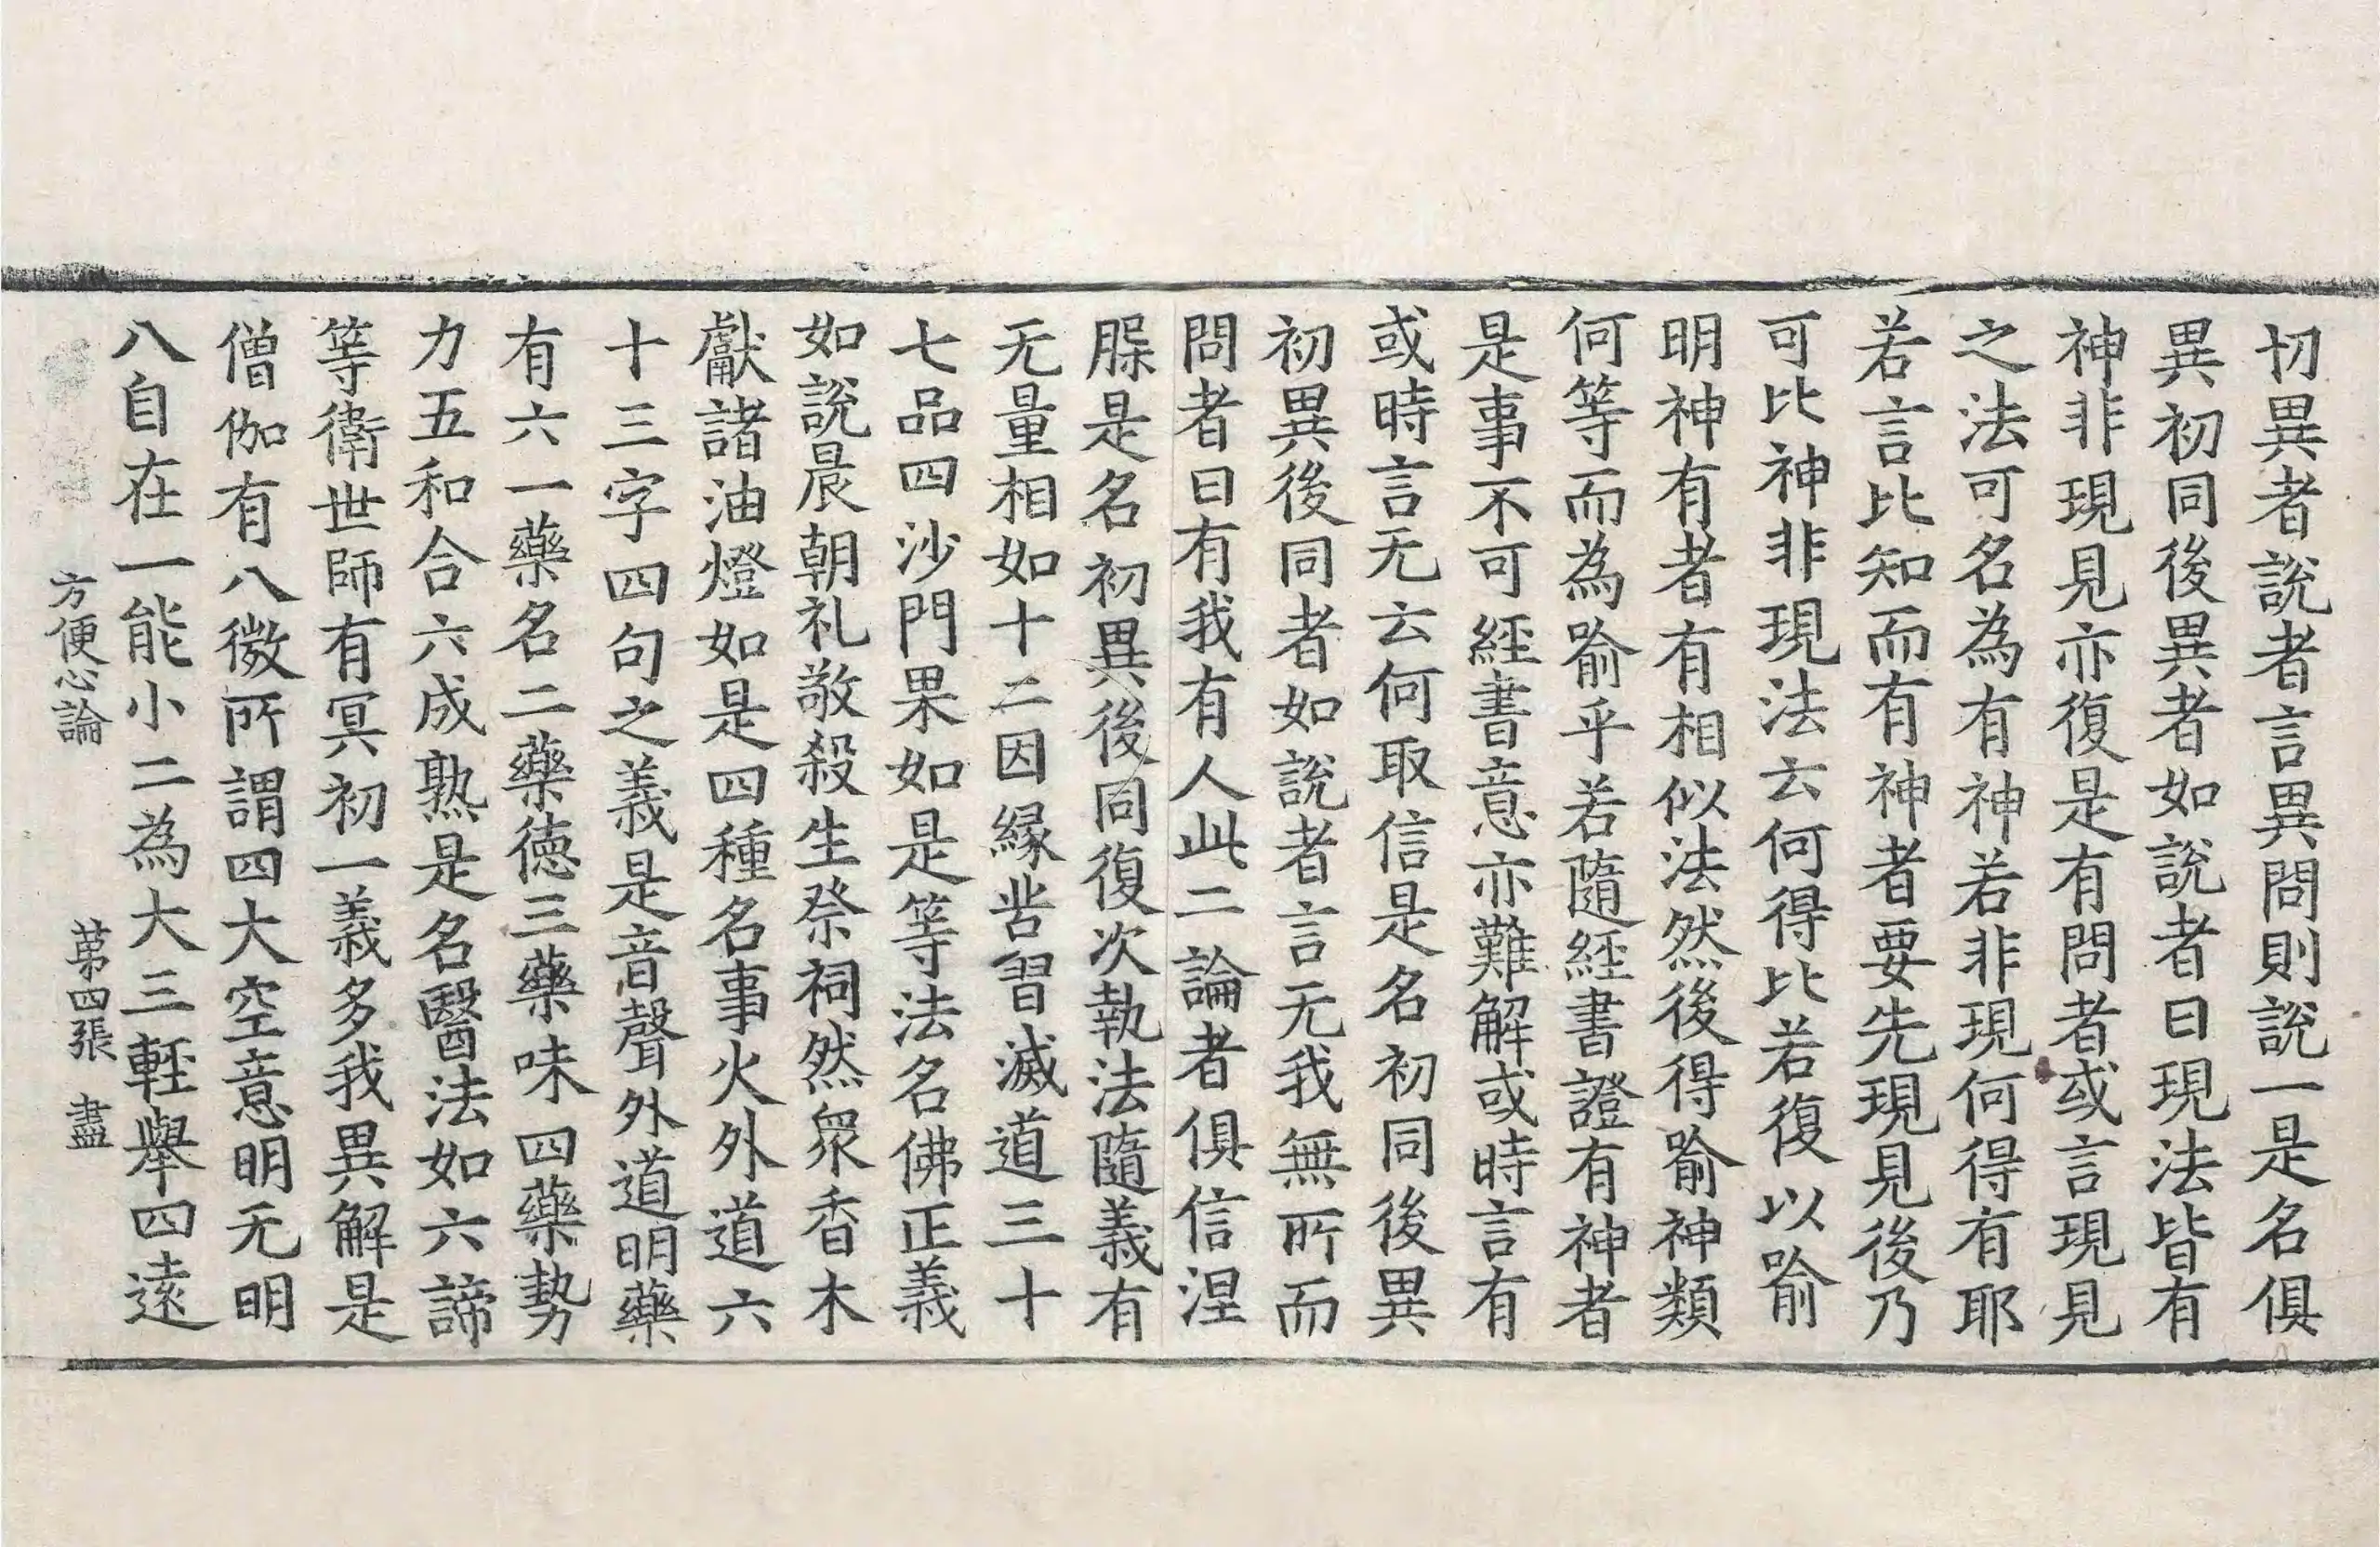 切異者說者言異問則說一是名俱
異初同後異者如說者曰現法皆有
神非現見亦復是有問者或言現見
之法可名為有神若非現何得有耶
若言比知而有神者要先現見後乃
可比神非現法云何得比若復以喻
明神有者有相似法然後得喻神類
何等而為喻乎若隨經書證有神者
是事不可經書意亦難解或時言有
或時言无云何取信是名初同後異
初異後同者如說者言无我無所而
問者曰有我有人此二論者俱信涅
脲是名初異後同復次執法隨義有
无量相如十二因緣苦習滅道三十
七品四沙門果如是等法名佛正義
如說晨朝礼敬殺生祭祠然衆香木
獻諸油燈如是四種名事火外道六
十三字四句之義是音聲外道明藥
有六一藥名二藥德三藥味四藥勢
力五和合六成熟是名醫法如六諦
等衛世師有冥初一義多我異解是
僧伽有八微所謂四大空意明无明
八自在一能小二為大三輕舉四遠
方便心論 苐四張 盡